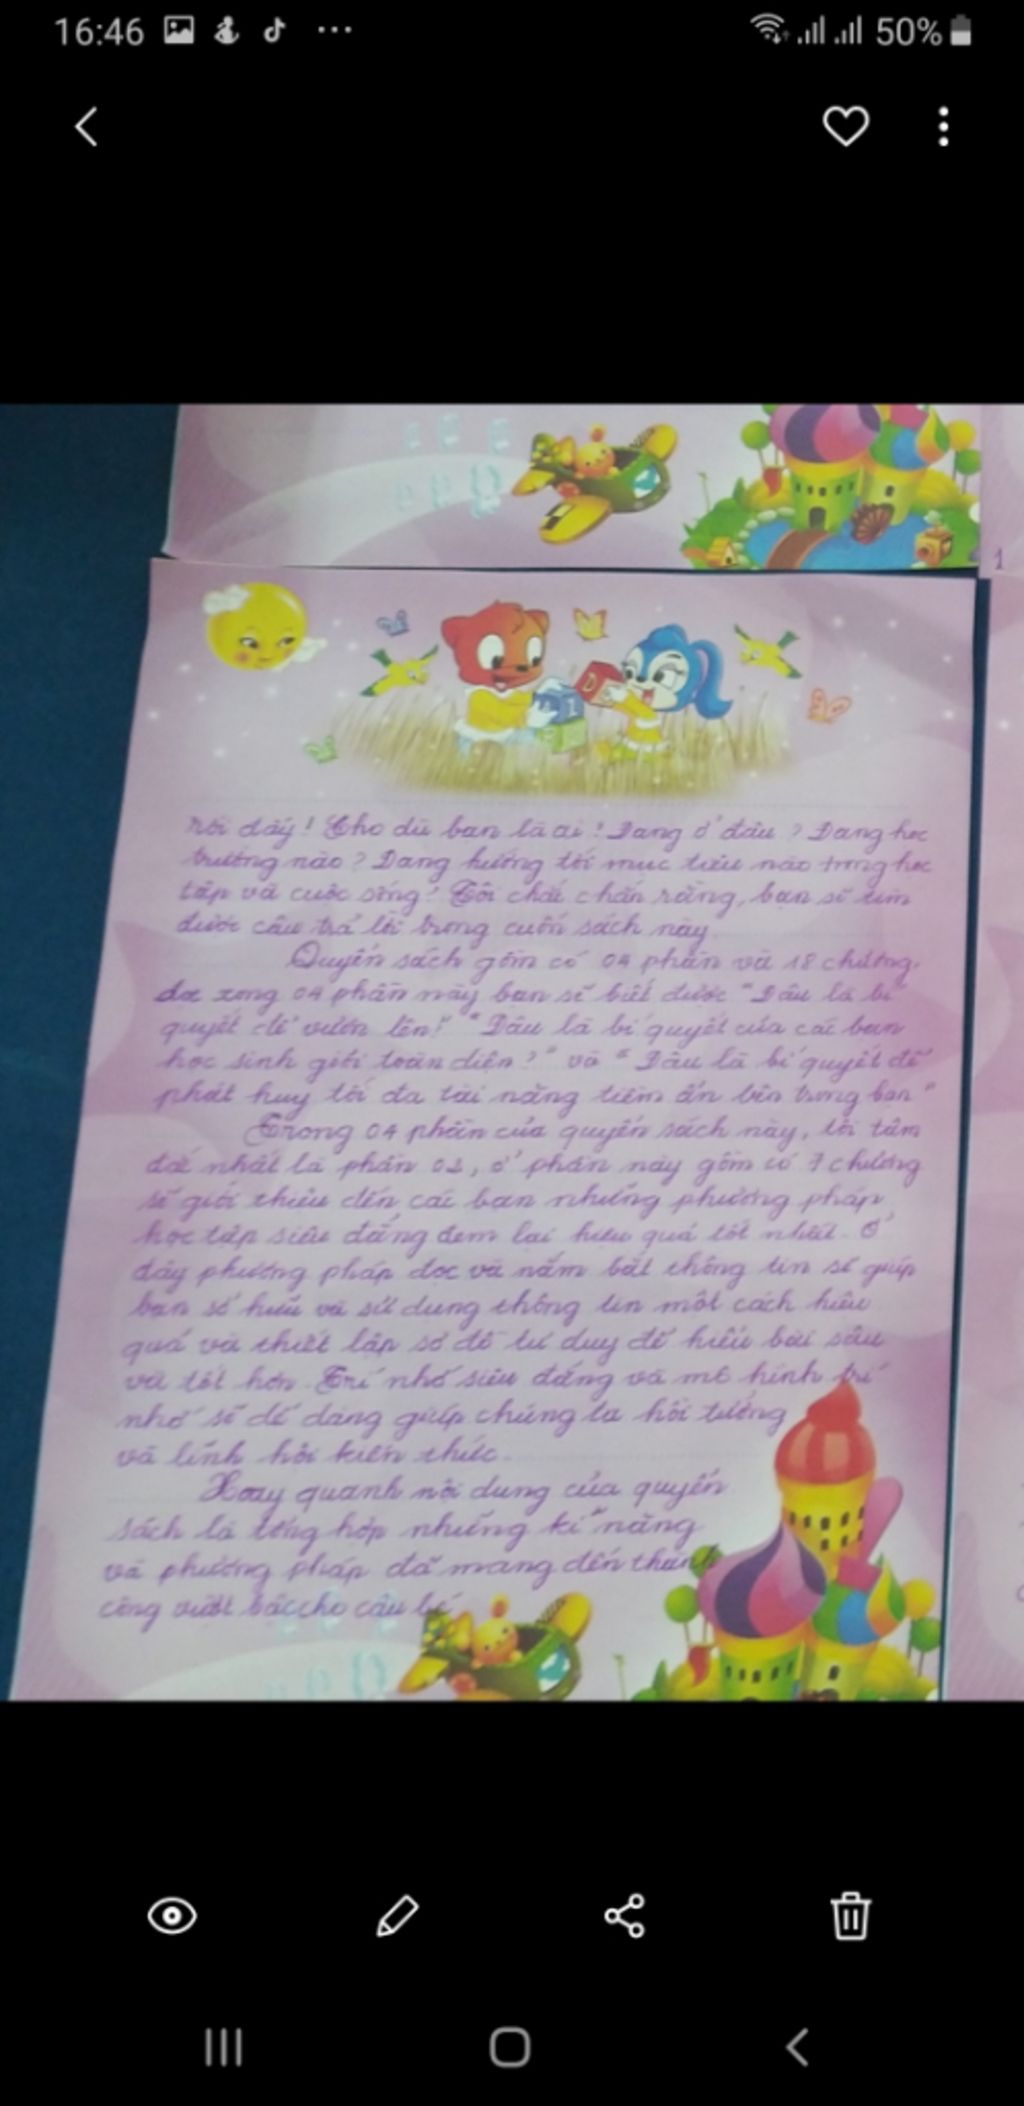 16:46
50%
1
D
1
rồi đấy! Cho dù bạn là ai! Đang ở đâu? Đang học
trường nào? Đang hướng tới mục tiêu nào trong học
tập và cuộc sống? Tôi chắc chắn rằng, bạn sẽ tìm
được câu trả lời trong cuốn sách này.
Quyển sách gồm có 04 phần và 18 chương.
đọc xong 04 phần này bạn sẽ biết được "Đâu là bí
quyết để vươn lên?" "Đâu là bí quyết của các bạn
học sinh giỏi toàn diện?" và "Đâu là bí quyết để
phát huy tối đa tài năng tiềm ẩn bên trong bạn"
Trong 04 phần của quyển sách này, tôi tâm
đắc nhất là phần 02, ở phần này gồm có 7 chương
sẽ giới thiệu đến các bạn những phương pháp
học tập siêu đẳng đem lại hiệu quả tốt nhất. Ở
đây phương pháp đọc và nắm bắt thông tin sẽ giúp
bạn sở hữu và sử dụng thông tin một cách hiệu
quả và thiết lập sơ đồ tư duy để hiểu bài sâu
và tốt hơn. Trí nhớ siêu đẳng và mô hình trí
nhớ sẽ dễ dàng giúp chúng ta hồi tưởng
và lĩnh hội kiến thức.
Xoay quanh nội dung của quyển
sách là tổng hợp những kĩ năng
và phương pháp đã mang đến thành
công vượt bậc cho cậu bé